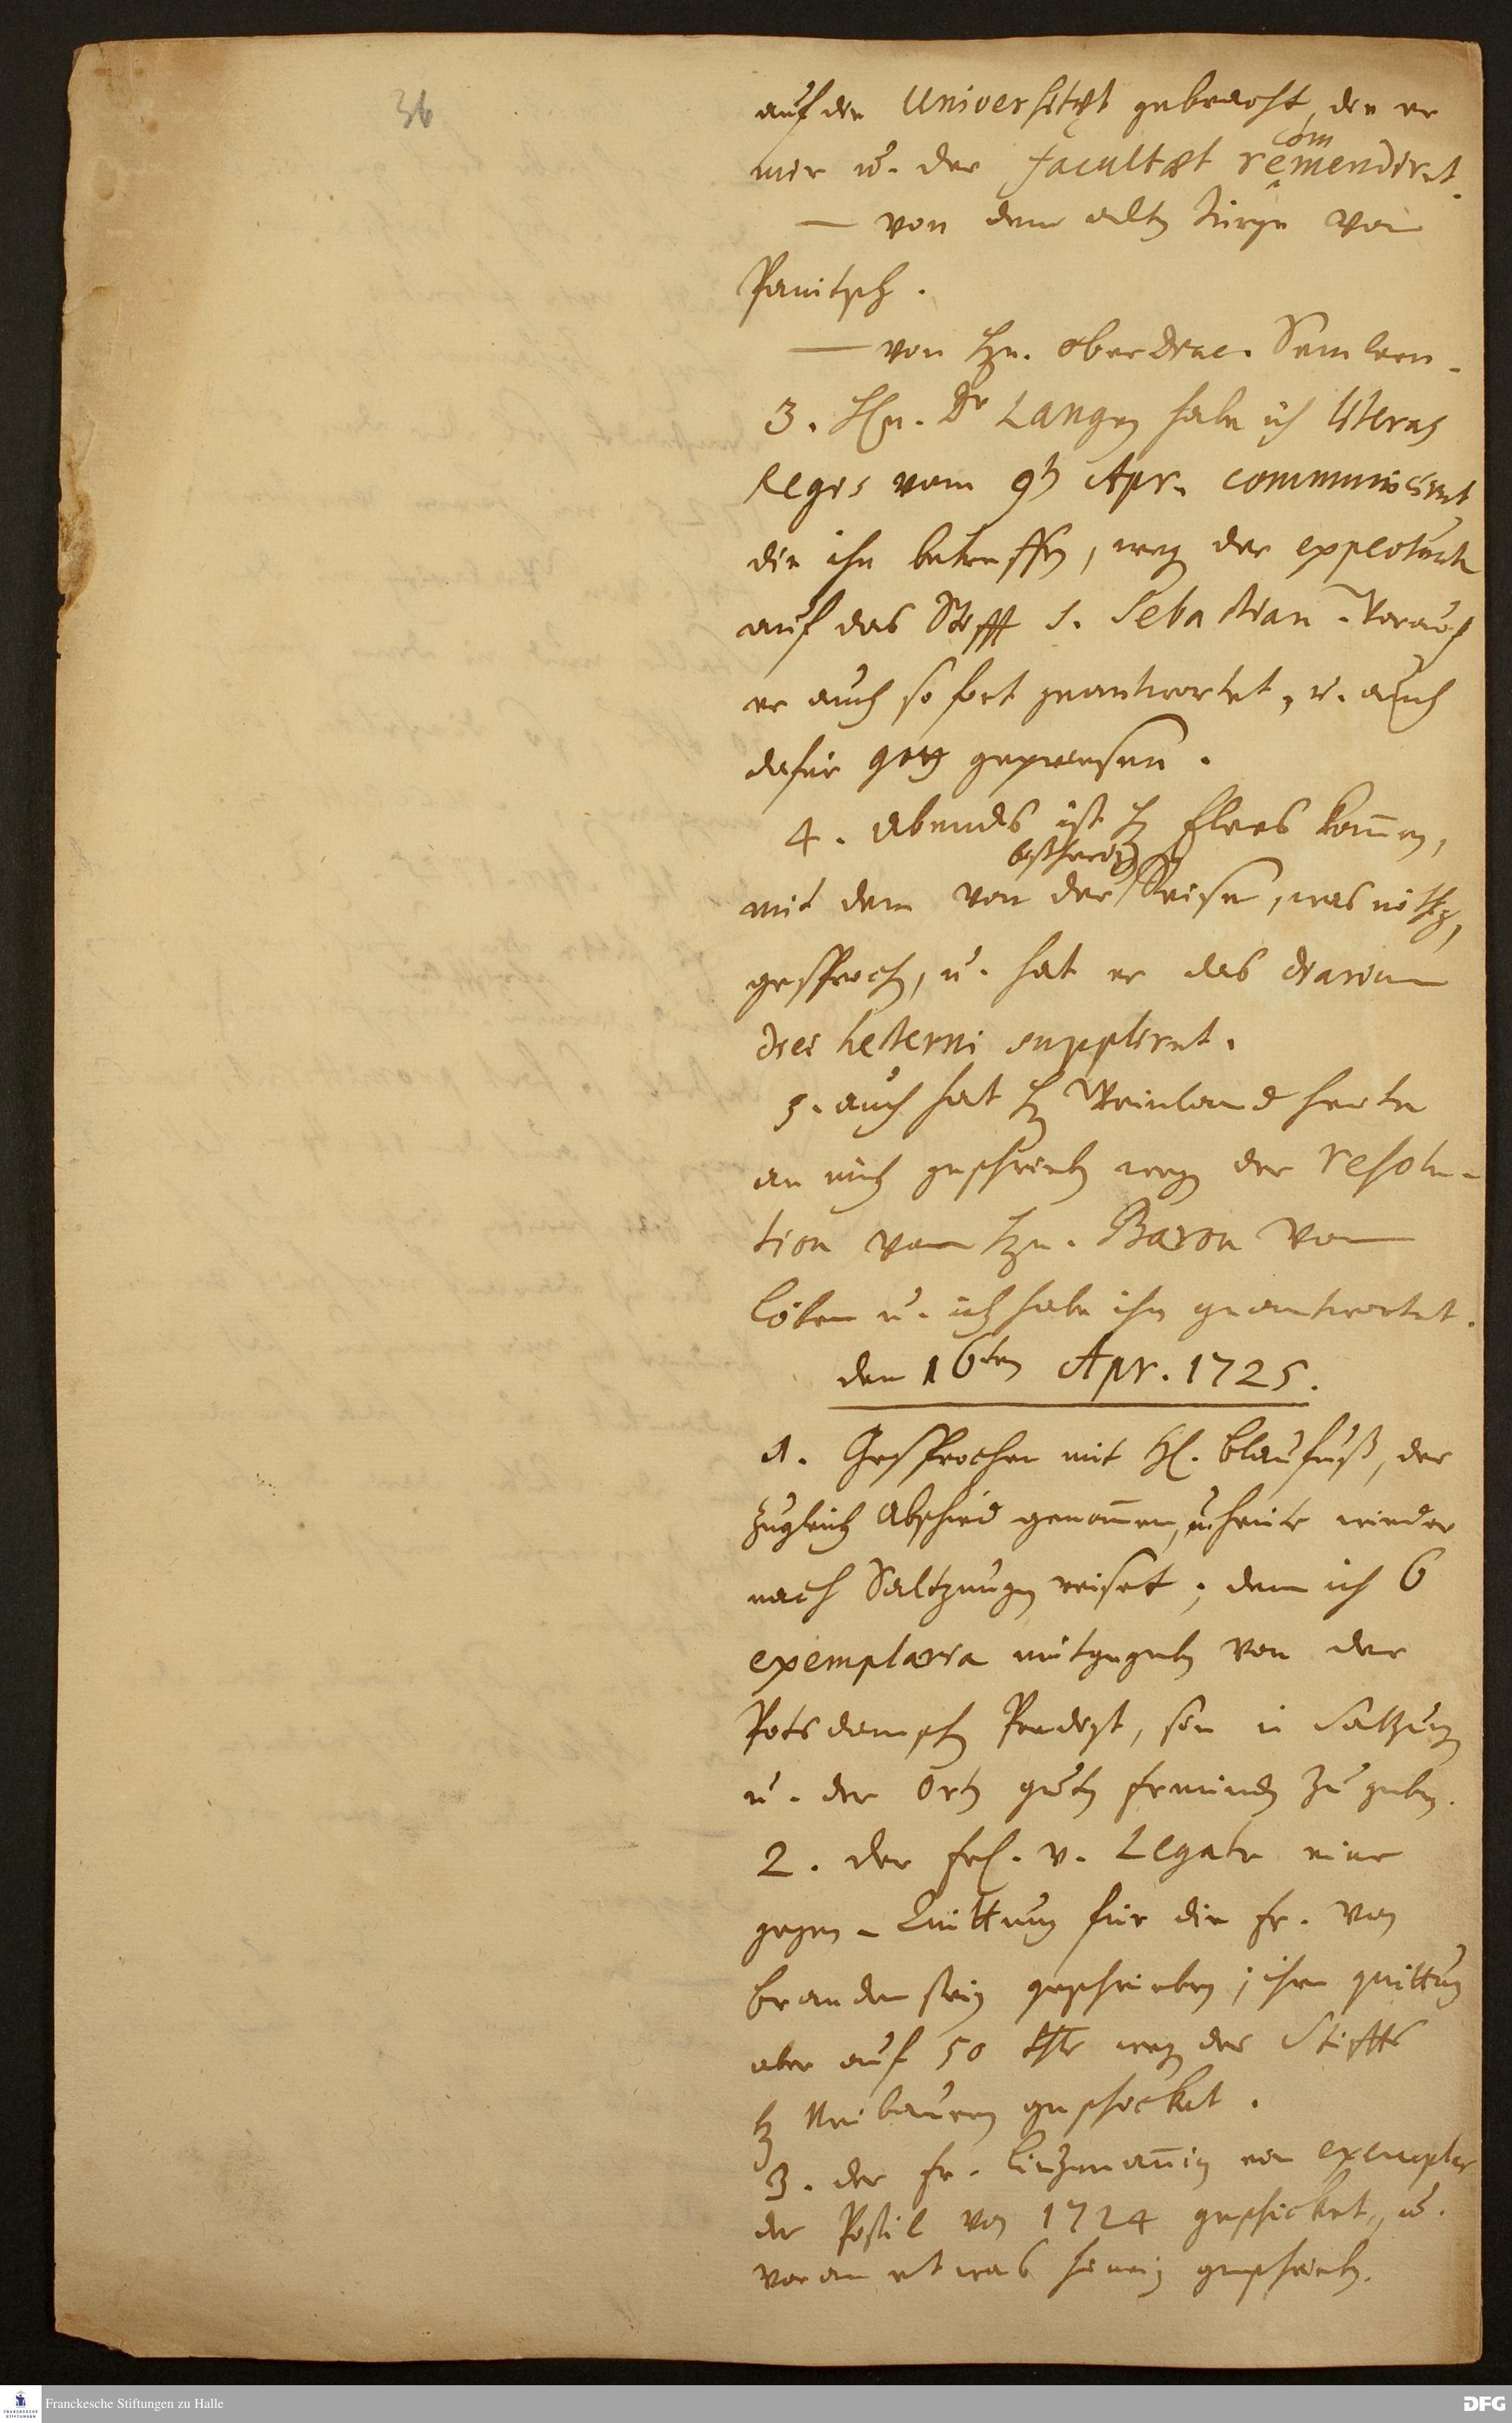 36
auf die Universität gebracht, die er
mir u. der facultæt recommendiret.
— von dem alten Jürgen von
Panitsch.
— von Hn. Oberdiac. Semlern.
3. Hn. Dr Langen habe ich literas
Regis vom 9t Apr. communiciret
die ihn betreffen, weg der expectantz
auf das Stifft S. Sebastian. Worauf
er auch sofort geantwortet, u. auch
dafür gott gepriesen.
4. Abends ist H Elers kommen,
mit dem von der Reise, was nöthig,
gesprochen, u. hat er das diarium
diei hesterni suppliret.
5. auch hat H Weinland heute
an mich geschrieben weg der resolu-
tion vom Hn. Baron von
Löben u. ich habe ihm geantwortet.
den 16ten Apr. 1725.
1. Gesprochen mit H. Blaufuß, der
zugleich Abschied genommen, u. heute wieder
nach Saltzungen reiset; dem ich 6
exemplaria mitgegeben von der
Potsdamschen Predigt, sie in Saltzung
u. der Orten guten freunden zu geben.
2. der Frl. v. Legate eine
gegen-Quittung für die Fr. von
Brandenstein geschrieben; ihre quittung
aber auf 50 thlr weg des Stiffts
H Neubauern geschicket.
3. der Fr. Linzmannin ein exemplar
der Postil von 1724 geschicket, u.
voran etwas hinein geschrieben.
Franckesche Stiftungen zu Halle
DFG